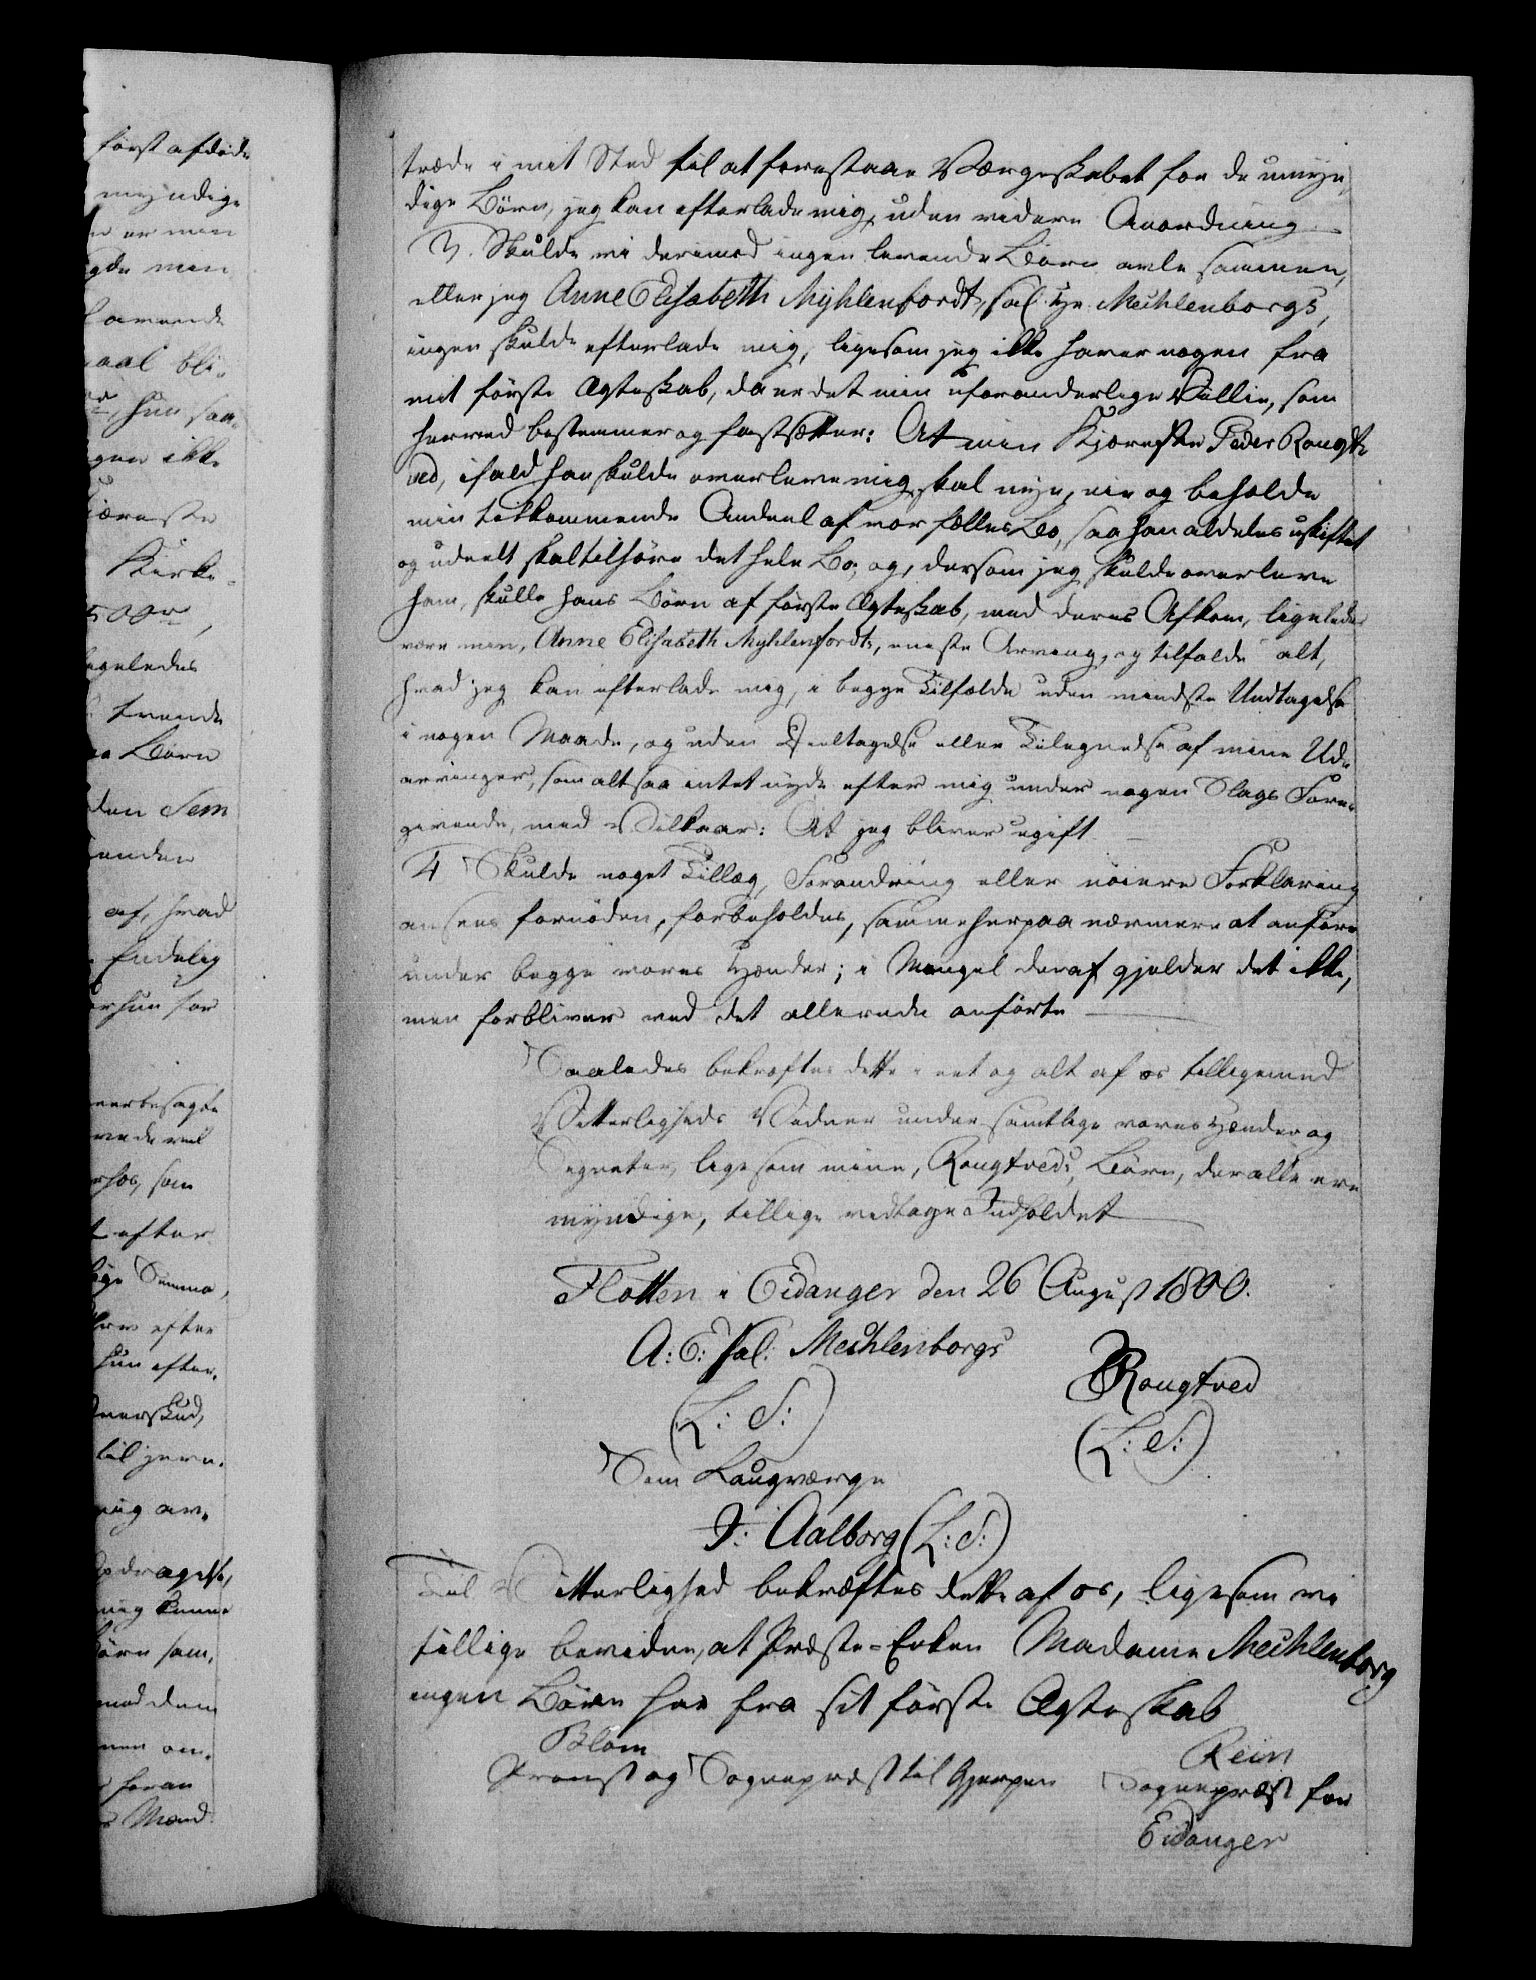 først afdøde
myndige
er min
min
bli-
hun saa-
ikke
Kiæreste
Kirke-
500 rd,
ligeledes
trende
Børn
den Sem
af, hvad
Endelig
hun for
som
efter
Summa,
efter
hun efter-
til gave-
mig kunne
Børn sam-
med dem
foran
Mand
træde i mit Sted til at forestaae Værgeskabet for de umyn-
dige Børn, jeg kan efterlade mig, uden videre Anordning
3. Skulde vi derimod ingen levende Børn avle sammen,
eller jeg Anne Elisabeth Myhlenfordt, sal. Hr. Mechlenborgs,
ingen skulde efterlade mig, ligesom jeg ikke haver nogen fra
mit første Ægteskab, da er det min uforanderlige Villie, som
herved bestemmer og fastsætter: At min Kjæreste Peder Rougt-
ved, ifald han skulde overleve mig, skal nye, eie og beholde
min tilkommende Andeel af vor fælles Bo, saa han aldeles uskiftet
og udeelt skal tilhøre det hele Bo; og, dersom jeg skulde overleve
ham, skulle hans Børn af første Ægteskab, med deres Afkom, ligeledes
være min, Anne Elisabeth Myhlenfordts, eneste Arving, og tilfalde alt,
hvad jeg kan efterlade mig, i begge Tilfælde uden mindste Undtagelse
i nogen Maade, og uden Deeltagelse eller Tilegnelse af mine Ud-
arvinger, som altsaa intet nyde efter mig under nogen Slags Fore-
givende, med Vilkaar: At jeg bliver ugift
4 Skulde noget Tillæg, Forandring eller nøiere Forklaring
ansees fornøden, forbeholdes, samme herpaa nærmere at anføre
under begge vores Hænder; i Mangel deraf gjelder det ikke,
men forbliver ved det allerede anførte
Saaledes bekræftes dette i eet og alt af os tilligemed
Vitterligheds Vidner under samtlige vores Hænder og
Signeter, ligesom mine, Rougtveds, Børn, der alle ere
myndige, tillige vedtage Indholdet
Flotten i Eidanger den 26 August 1800.
A: E: sal: Mechlenborgs
Rougtved
(L: S:)
(L: S:)
Som Laugværge
J: Aalborg (L: S:)
Til Vitterlighed bekræftes dette af os, ligesom vi
tillige bevidne, at Præste-Enken Madame Mechlenborg
ingen Børn har fra sit første Ægteskab
Blom
Rein
Provst og Sognepræst til Gjerpen
Sognepræst for
Eidanger